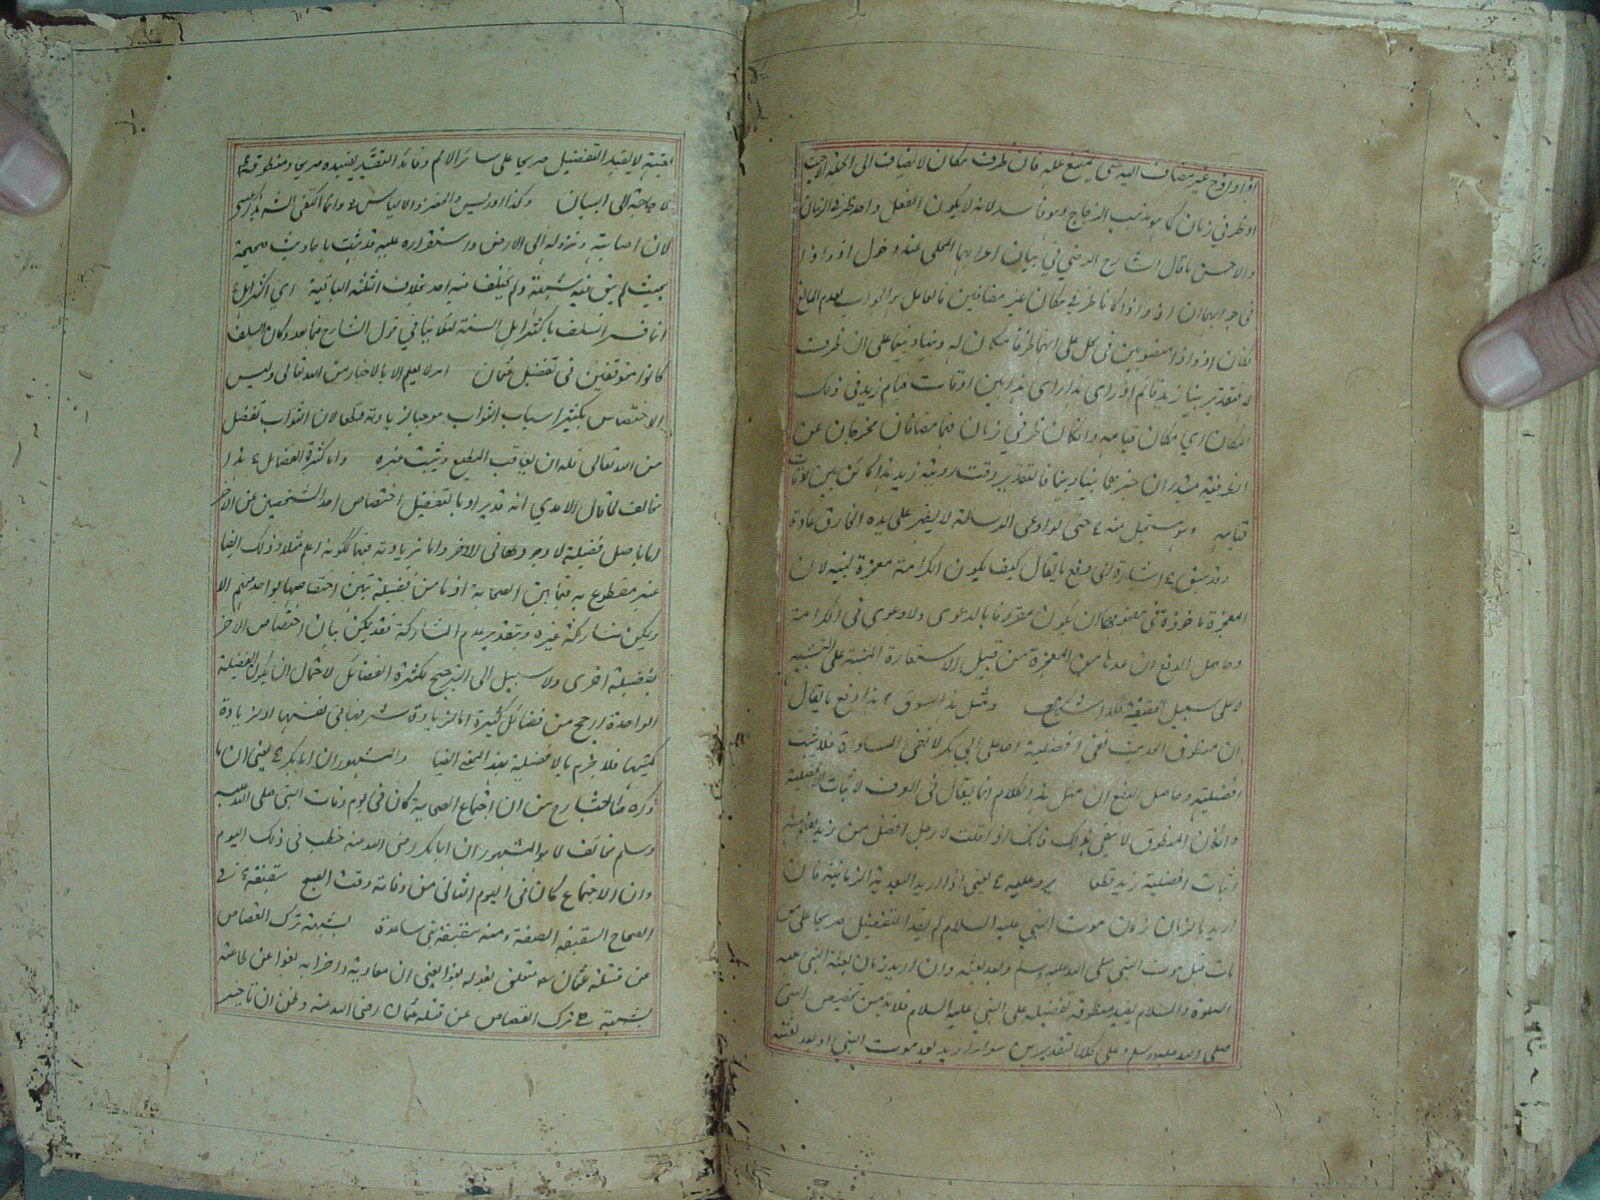 او ظرفي زمان كما هو مذهب الزجاج وهو فاسد لانه لا يكون الفعل واحد ظرفا الزمان
والاحسن ما قال الشارح الرضي في بيان اعرابهما المحلى عند دخول اذ واذا
في جوابهما ان اذ واذا كانا ظرفي مكان غير مضافين فالعامل هو الجواب لعدم المانع
فكان اذ واذا منصوبين في محل على انهما ظرفا مكان له وبينا وبينما على ان ظرفيت
له فتقدير بينا زيد قائم اذ راى هذا راى هذا بين اوقات قيام زيد في ذلك
المكان اي مكان قيامه وان كان ظرفي زمان فهما مضافان مخرجان عن
الظرفية مبتدءان خبرهما بينا وبينما فالتقدير وقت روية زيد هذا كائن بين اوقات
قيامه وهو مستحيل منه حتى لو ادعى الرسالة لا يظهر على يده الخارق عادة
وقد سبق اشارة الى دفع ما يقال كيف يكون الكرامة معجزة لنبيه لان
المعجزة ماخوذة في مفهومها ان يكون مقرونا بالدعوى ولا دعوى في الكرامة
وحاصل الدفع ان عدها من المعجزة من قبيل الاستعارة المبنية على التشبيه
لا على سبيل الحقيقة فلا اشكال ومثل هذا السوق هذا دفع ما يقال
ان منطوق الحديث نفى افضلية احد على ابي بكر لا نفى المساواة فلا يثبت
افضليته وحاصل الدفع ان مثل هذا الكلام انما يقال في العرف لاثبات الافضلية
وان كان المنطوق لا يفي بذلك فانك اذا قلت لا رجل افضل من زيد يفهم منه
اثبات افضلية زيد قطعا يرد عليه يعني اذا اريد البعدية الزمانية فان
اريد بالزمان زمان موت النبي عليه السلام لم يفد التفضيل صريحا على من
مات قبل موت النبي صلى الله عليه وسلم وبعد بعثه وان اريد زمان بعثة النبي عليه
الصلوة والسلام يفيد منطوقه تفضيله على النبي عليه السلام فلا بد من تخصيص النبي
صلى الله عليه وسلم وعلى كلا التقديرين سواء اريد بعد موت النبي او بعد بعثته
بعينه لا يفيد التفضيل صريحا على سائر الامم وفائد التقييد يفيده صريحا ومنطوقه
لا حاجة الى البيان وكذا ادريس والخضر والالياس وانما اكتفى الشارح بذكر عيسى
لان اصابته ونزوله الى الارض واستقراره عليه قد ثبت باحاديث صحيحة
بحيث لم يبق فيه شبهة ولم يختلف فيه احد بخلاف الثلثة الباقية اي اكثر اهل
انما فسر السلف باكثر اهل السنة لئلا ينافي قول الشارح فيما بعد وكان السلف
كانوا متوقفين في تفضيل عثمان امر لا يعلم الا بالاخبار من الله تعالى وليس
الاختصاص بكثير اسباب الثواب موجبا لزيادته قطعا لان الثواب تفضل
من الله تعالى فله ان يعاقب المطيع ويثبت غيره واما كثرة الفضائل هذا
مخالف لما قال الامدي انه قد يراد بالتفضيل اختصاص احد الشخصين عن الاخر
اما باصل فضيلة لا وجود لها في الاخر واما بزيادته فيها ككونه اعلم مثلا وذلك ايضا
غير مقطوع به فيما بين الصحابة اذ ما من فضيلة تبين اختصاصها بواحد منهم الا
ويمكن مشاركة غيره وبتقدير عدم المشاركة فقد يمكن بيان اختصاص الاخر
بفضيلة اخرى ولا سبيل الى الترجيح بكثرة الفضائل لاحتمال ان يكون الفضيلة
الواحدة ارجح من فضائل كثيرة اما لزيادة شرفها في نفسها او لزيادة
كميتها فلا جزم بالافضلية بهذا المعنى ايضا والمشهور ان ابا بكر يعني ان ما
ذكره الشارح من ان اجتماع الصحابة كان في يوم وفات النبي صلى الله عليه
وسلم مخالف لما هو المشهور ان ابا بكر رضى الله عنه خطب في ذلك اليوم
وان الاجتماع كان في اليوم الثاني من وفاته وقت الصبح سقيفة في
الصحاح السقيفة الصفة ومنه سقيفة بني ساعدة لشبهة ترك القصاص
عن قتلة عثمان متعلق بقوله بغوا يعني ان معاوية واحزابه بغوا عن طاعته
بشبهة هي ترك القصاص عن قتلة عثمان رضى الله عنه وظن ان تاخير